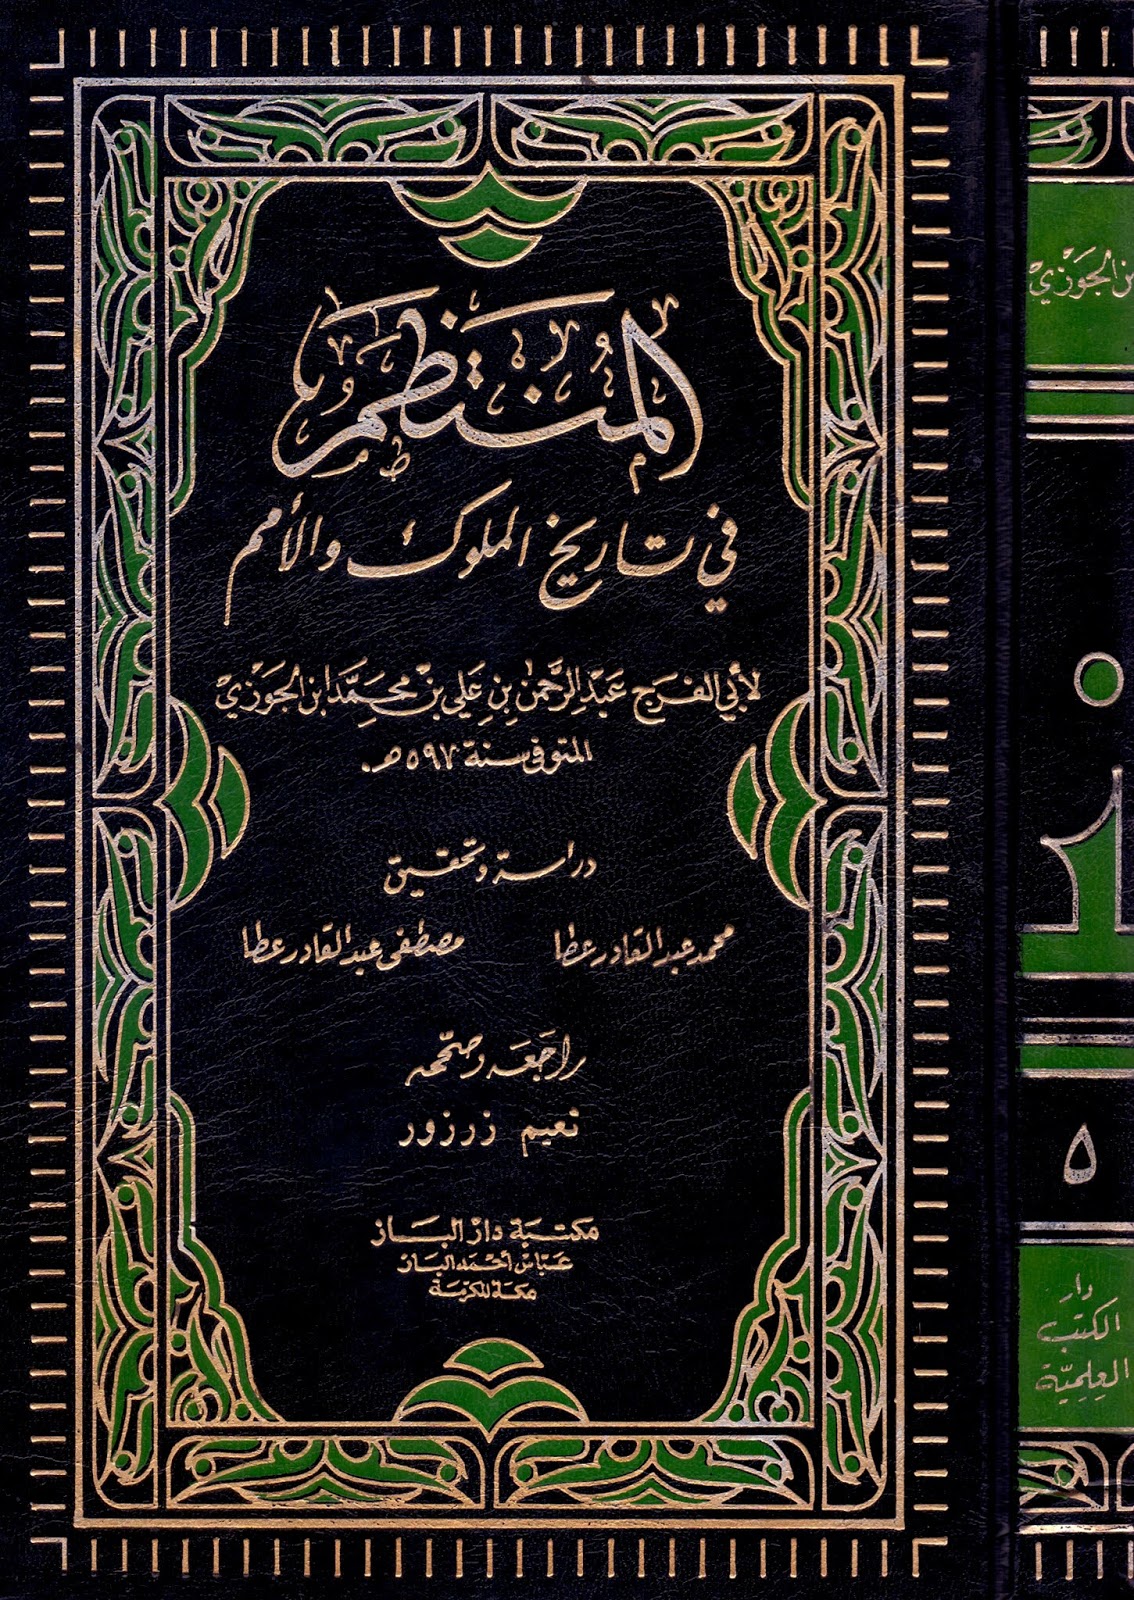 المنتظم
في تاريخ الملوك والأمم
لأبي الفرج عبد الرحمن بن علي بن محمد ابن الجوزي
المتوفى سنة ٥٩٧ هـ.
دراسة وتحقيق
محمد عبد القادر عطا مصطفى عبد القادر عطا
راجعه وصححه
نعيم زرزور
مكتبة دار الباز
عباس أحمد الباز
مكة المكرمة
الجوزي
٥
دار
الكتب
العلمية